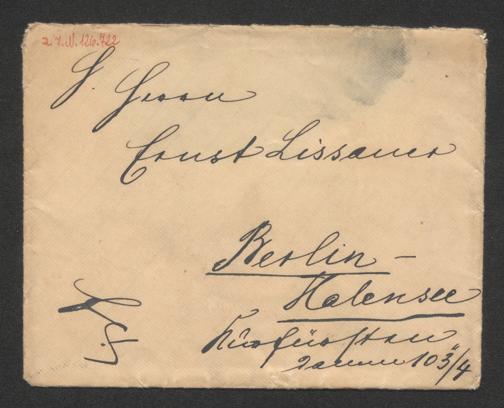 2 J.N. 126.722
S. Herrn
Ernst Lissauer
Berlin-
Halensee
Kurfürsten
damm 103/4